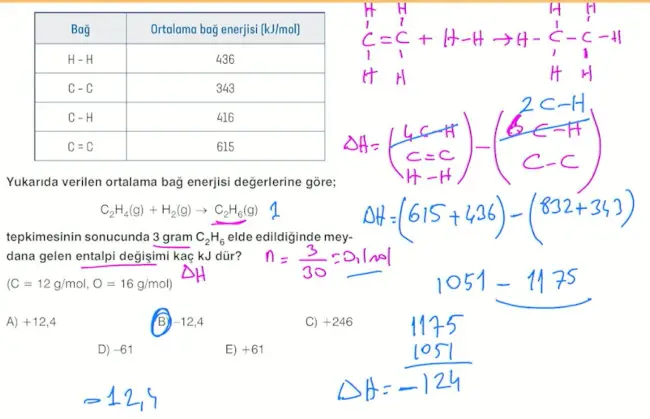 Bağ Ortalama bağ enerjisi (kJ/mol)
H - H 436
C - C 343
C - H 416
C = C 615
Yukarıda verilen ortalama bağ enerjisi değerlerine göre;
C₂H₄(g) + H₂(g) → C₂H₆(g) 1
tepkimesinin sonucunda 3 gram C₂H₆ elde edildiğinde mey-
dana gelen entalpi değişimi kaç kJ dür?
ΔH
(C = 12 g/mol, O = 16 g/mol)
A) +12,4 B) –12,4 C) +246
D) –61 E) +61
= 12,4
n = 3/30 = 0,1 mol
H H H H
C = C + H-H → H - C - C - H
H H H H
2 C-H
ΔH = (4 C-H C=C H-H) - (6 C-H C-C)
ΔH = (615 + 436) - (832 + 343)
1051 - 1175
1175
1051
ΔH = -124